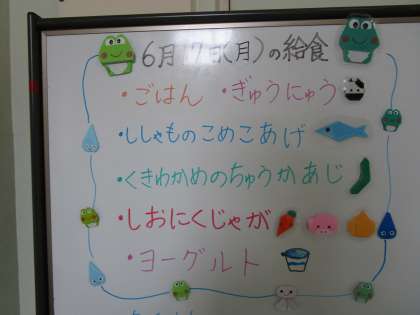 6月17日(月)の給食
・ごはん ・ぎゅうにゅう
・ししゃものこめこあげ
・くきわかめのちゅうかあじ
・しおにくじゃが
・ヨーグルト